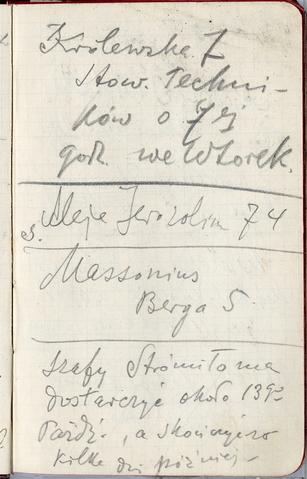 Królewska 7
Stow. Techni-
ków o 7 ej
godz. we Wtorek.
Aleje Jerozolim 74
Massonius
Berga 5
szafy Stromiło ma
dostarczyć około 13go
Paźdź., a skończyć
kilka dni później